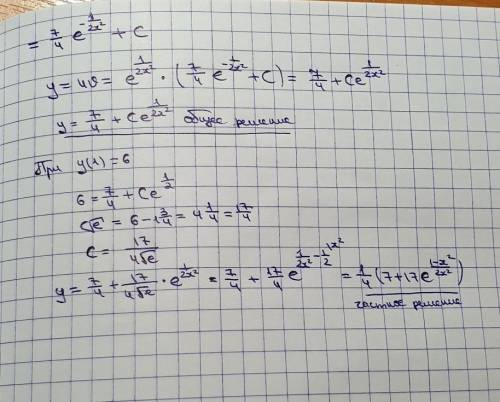 = 7/4 e^(-1/(2x²)) + C
y = uϑ = e^(1/(2x²)) · (7/4 e^(-1/(2x²)) + C) = 7/4 + Ce^(1/(2x²))
y = 7/4 + Ce^(1/(2x²)) общее решение
При y(1) = 6
6 = 7/4 + Ce^(1/2)
C√e = 6 - 1 3/4 = 4 1/4 = 17/4
C = 17/(4√e)
y = 7/4 + 17/(4√e) · e^(1/(2x²)) = 7/4 + 17/4 e^(1/(2x²) - 1/2 \x²) = 1/4 (7 + 17e^((1-x²)/(2x²)))
частное решение